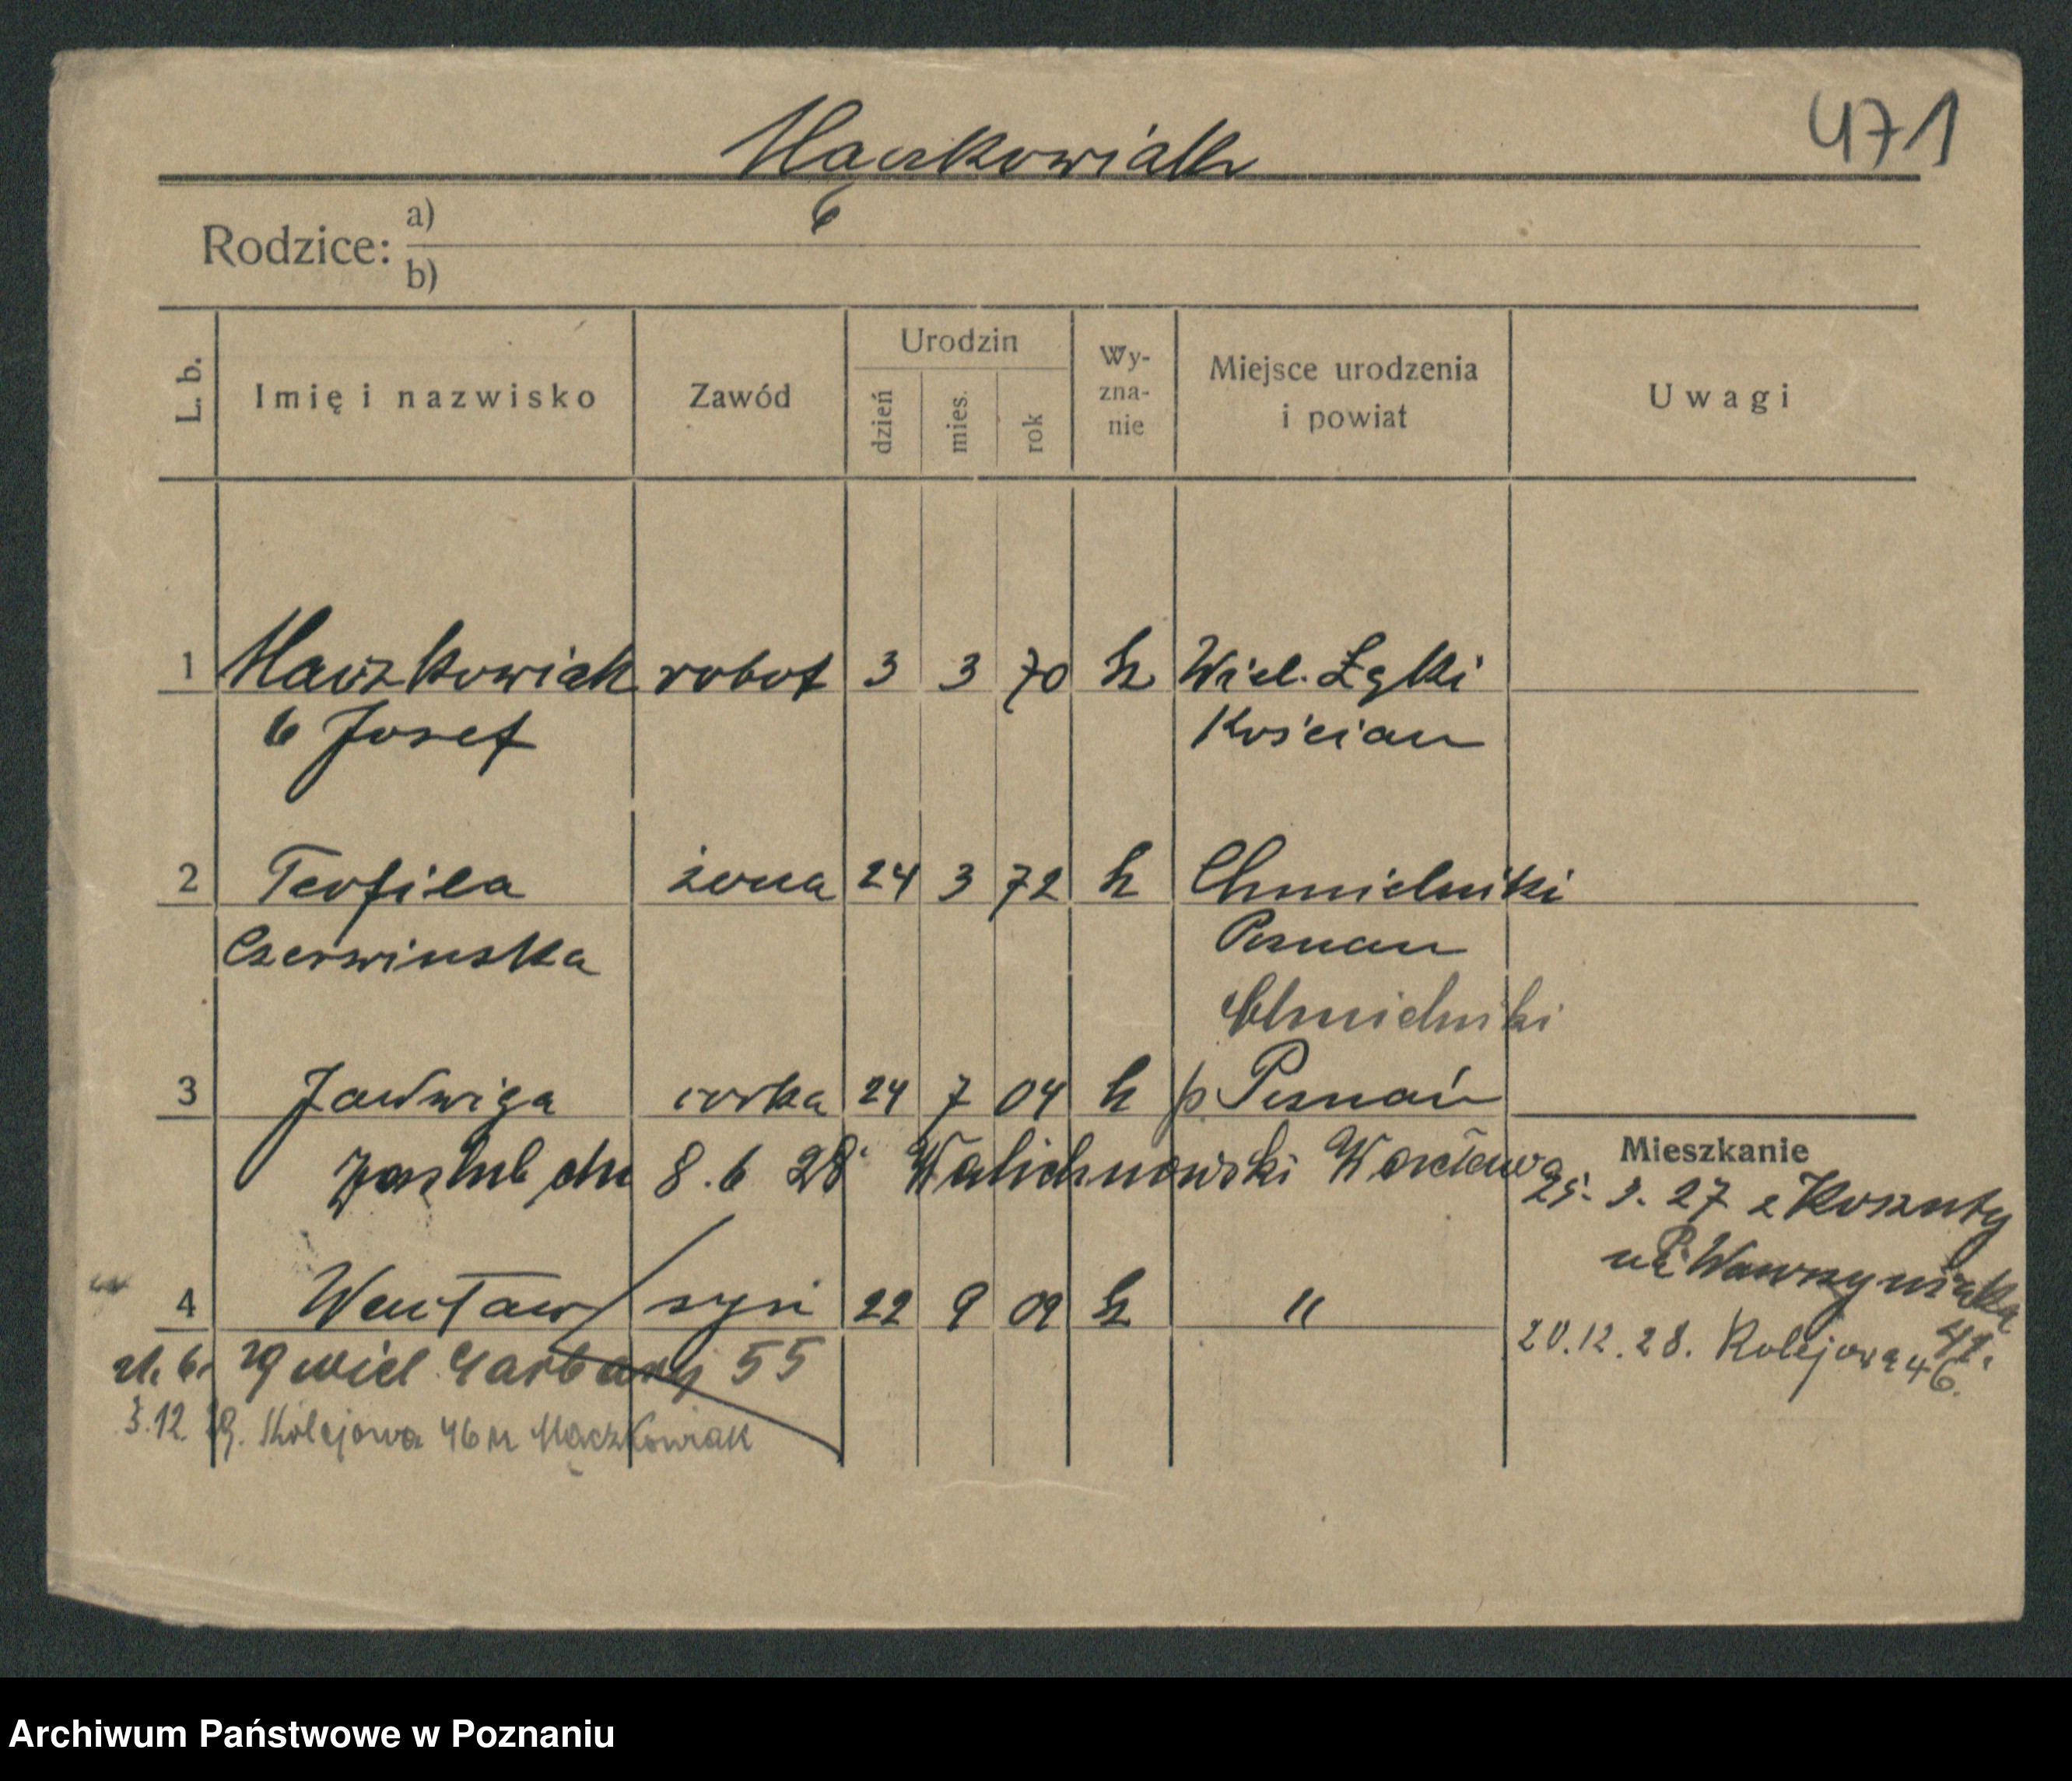 471
Mączkowiak
Rodzice: a)
b)
L. b. Imię i nazwisko Zawód Urodzin dzień mies. rok Wy-zna-nie Miejsce urodzenia i powiat Uwagi
1 Maczkowiak robot 3 3 70 k Wiel. Łęki
Josef Kościan
2 Teofila żona 24 3 72 k Chmielniki
Czerwinska Poznan
Chmielniki
3 Jadwiga corka 24 7 04 k p Poznań
zaslub dn 8.6 28 Walichnowski Wacława
Mieszkanie
25. 3. 27 z Kosznty
na Wawrzyniaka
41.
4 Wacław syn 22 9 09 k "
20.12.28. Kolejowa 46.
21. 6. 29 Wiel Garbary 55
3.12. 29. Kolejowa 46 M Mączkowiak
Archiwum Państwowe w Poznaniu